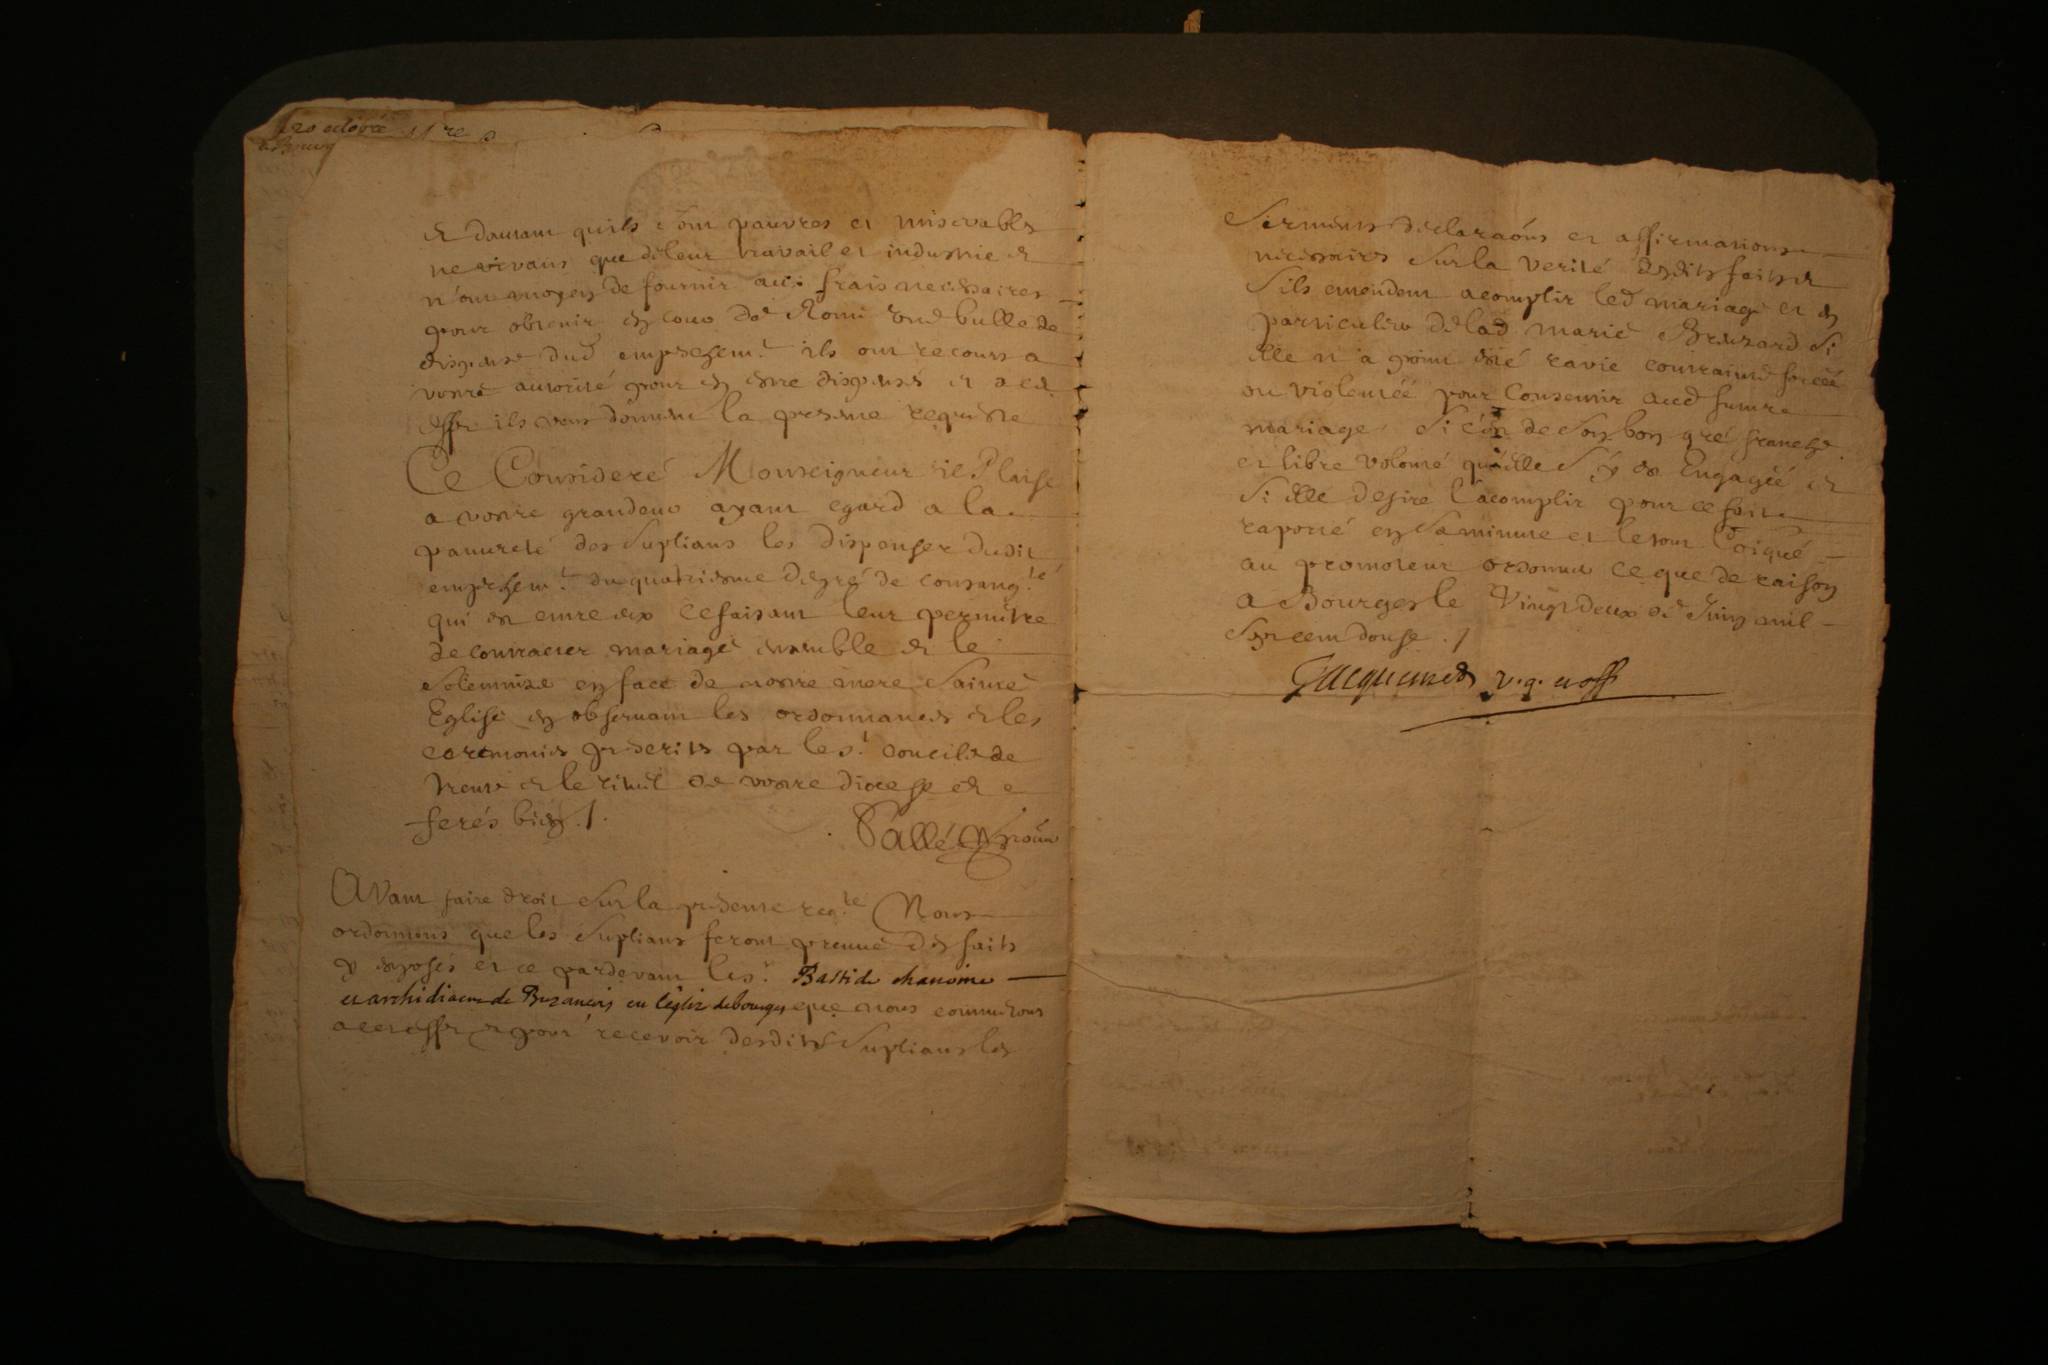 20 octobre
et dautant quils sont pauvres et miserables
ne vivans que de leur travail et industrie et
n'ont moyen de fournir aux frais necessaires
pour obtenir en cour de Rome une bulle de
dispense dud empeschem.t ils ont recours a
vostre autorité pour en estre dispensés et a cet
effet ils vous donnent la presente requeste
Ce Consideré Monseigneur il Plaise
a vostre grandeur ayant egard a la
pauureté des Suplians les dispenser dudit
empeschem.t du quatriesme degré de consang.té
qui est entre eux Ce faisant leur permettre
de contracter mariage ensemble et le
solemnizer en face de nostre mere Sainte
Eglise en obseruant les ordonnances et les
ceremonies prescrits par le s.t concile de
trente et le rituel de vostre diocese et e
ferés bien ./.
Vallé
Avant faire droit Sur la presente req.te Nous
ordonnons que les Suplians feront preuue des faits
y exposés et ce pardevant le s.r Bastide chanoine
et archidiacre de Buzançois en l'eglise de bourges que nous commettons
a cet effet et pour recevoir desdits Suplians les
Sermens declaraõns et affirmations
necessaires Sur la verité desdits faits et
Sils entendent acomplir led mariage et en
particulier de lad marie Brunzard Si
elle n'a point esté ravie contrainte forcéé
ou violentéé pour Consentir aud futur
mariage Si c'est de Son bon gré franche
et libre volonté qu'elle S'y est Engagéé et
Si elle desire l'acomplir pour ce fait
raporté en Sa minute et le tout Coiqué
au promoteur ordonner ce que de raison
a Bourges le Vingt deux de Juin mil
Sept cent douse ./
Jacquemet v.g. et off